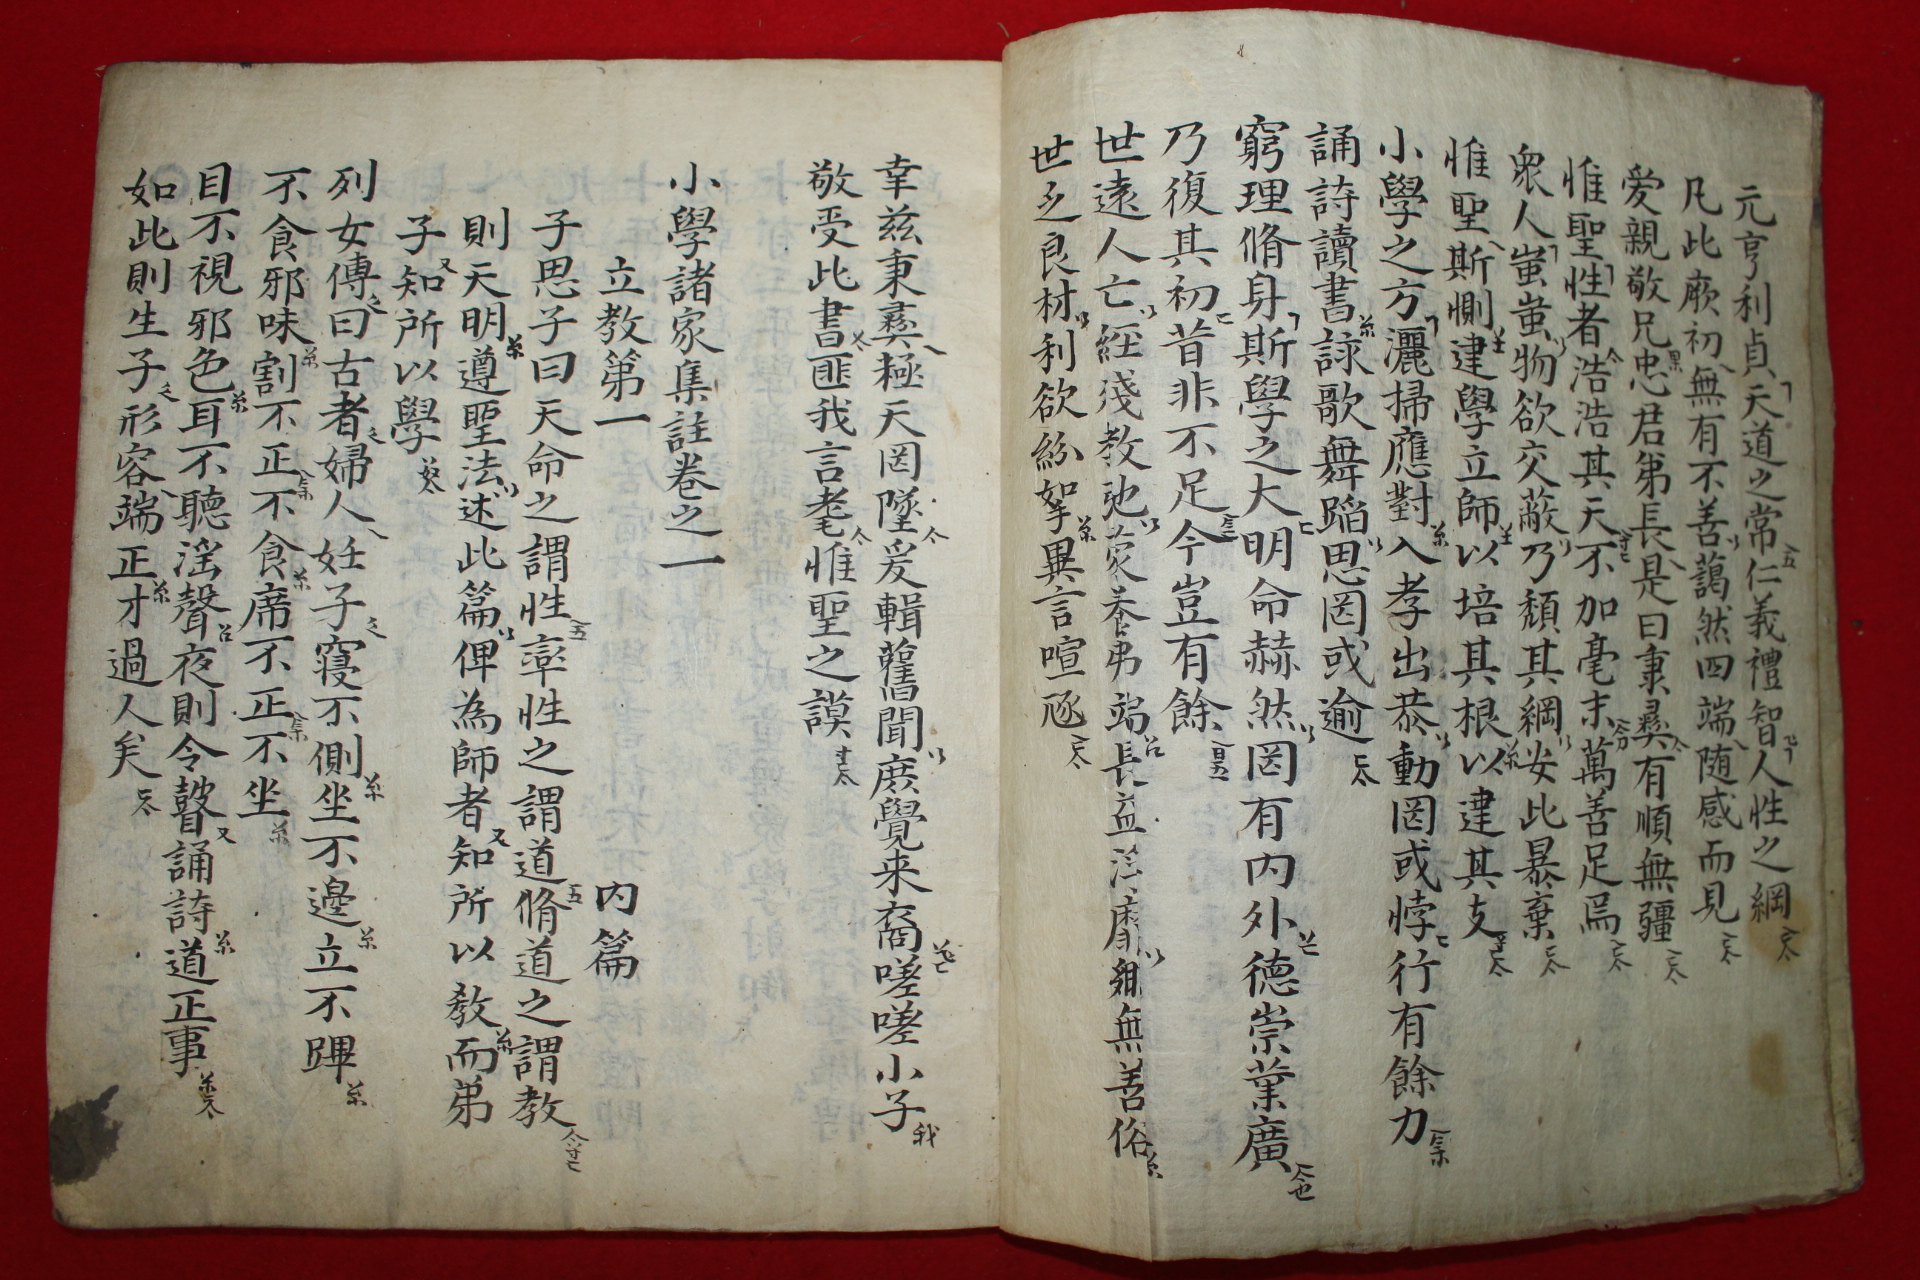 元亨利貞天道之常仁義禮智人性之綱
凡此厥初無有不善藹然四端随感而見
爱親敬兄忠君弟長是曰秉彛有順無疆
惟聖性者浩浩其天不加毫末萬善足焉
衆人蚩蚩物欲交蔽乃頹其綱安此暴棄
惟聖斯惻建學立師以培其根以達其支
小學之方灑掃應對入孝出恭動罔或悖行有餘力
誦詩讀書詠歌舞蹈思罔或逾
窮理脩身斯學之大明命赫然罔有内外德崇業廣
乃復其初昔非不足今豈有餘
世遠人亡経殘教弛蒙養弗端長益浮靡鄉無善俗
世乏良材利欲紛挐異言喧豗
幸茲秉彛極天罔墜爰輯舊聞庶覺来裔嗟嗟小子
敬受此書匪我言耄惟聖之謨
小學諸家集註卷之一
立教第一 内篇
子思子曰天命之謂性率性之謂道脩道之謂教
則天明遵聖法述此篇俾為師者知所以教而弟
子知所以學
列女傳曰古者婦人妊子寢不側坐不邊立不蹕
不食邪味割不正不食席不正不坐
目不視邪色耳不聽淫聲夜則令瞽誦詩道正事
如此則生子形容端正才過人矣